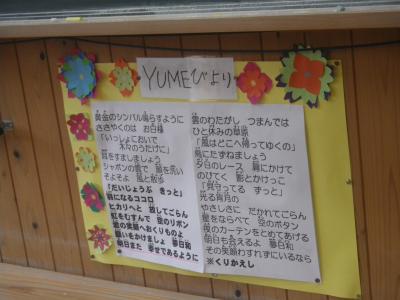 YUMEびより
黄金のシンバル鳴らすように
ささやくのは お日様
「いっしょにおいで
木々のうたげに」
耳をすましましょう
シャボンの雲で 顔を洗い
そよそよ 風と散歩
「だいじょうぶ きっと」
絹になるココロ
ヒカリへと 放してごらん
虹をむすんで 空のリボン
君の笑顔へおくりものよ
願いをかけましょ 夢日和
明日また 幸せであるように
雲のわたがし つまんでは
ひと休みの草原
「風はどこへ帰ってゆくの」
鳥にたずねましょう
夕日のレース 肩にかけて
のけてく 影とかけっこ
「見守ってる ずっと」
光る宵月の
やさしさに だかれてごらん
星をならべて 空のボタン
夜のカーテンをとめてあげる
明日も会えるよ 夢日和
その笑顔わすれずにいるなら
※くりかえし